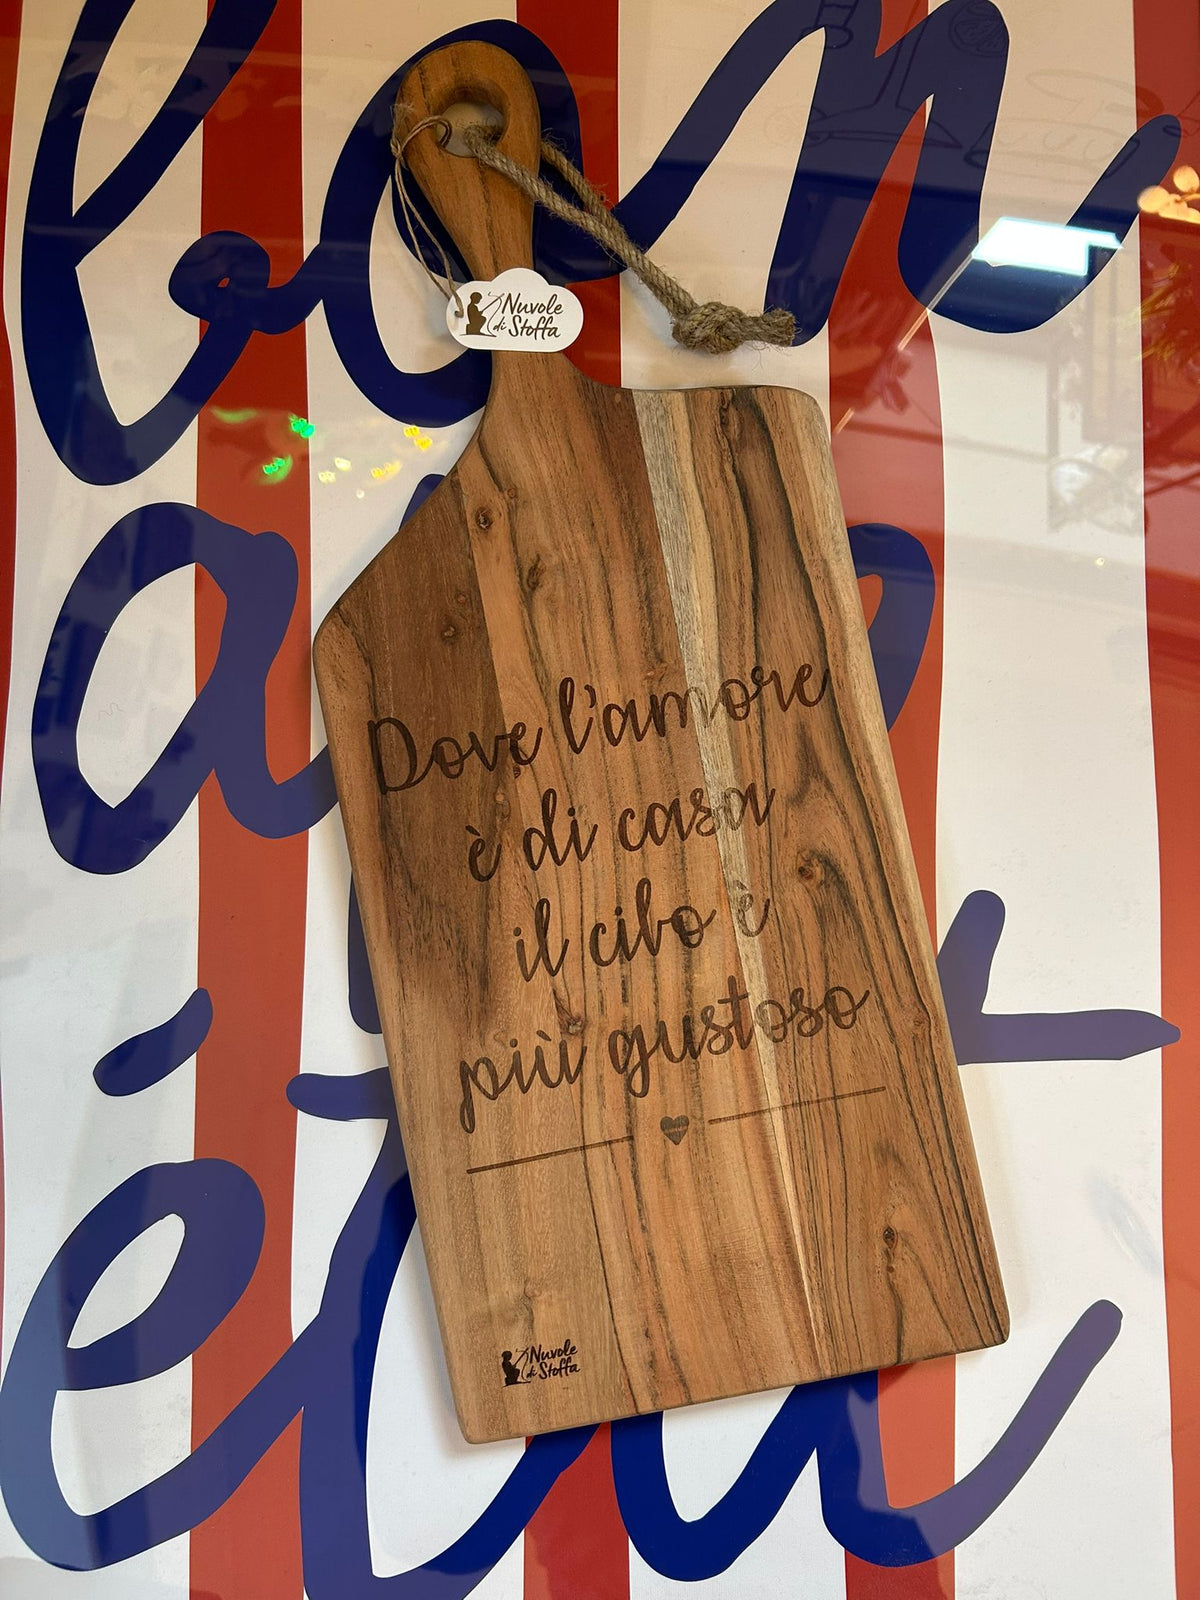 bon
Nuvole
di Stoffa
Dove l'amore
è di casa
il cibo è
più gustoso
Nuvole
di Stoffa